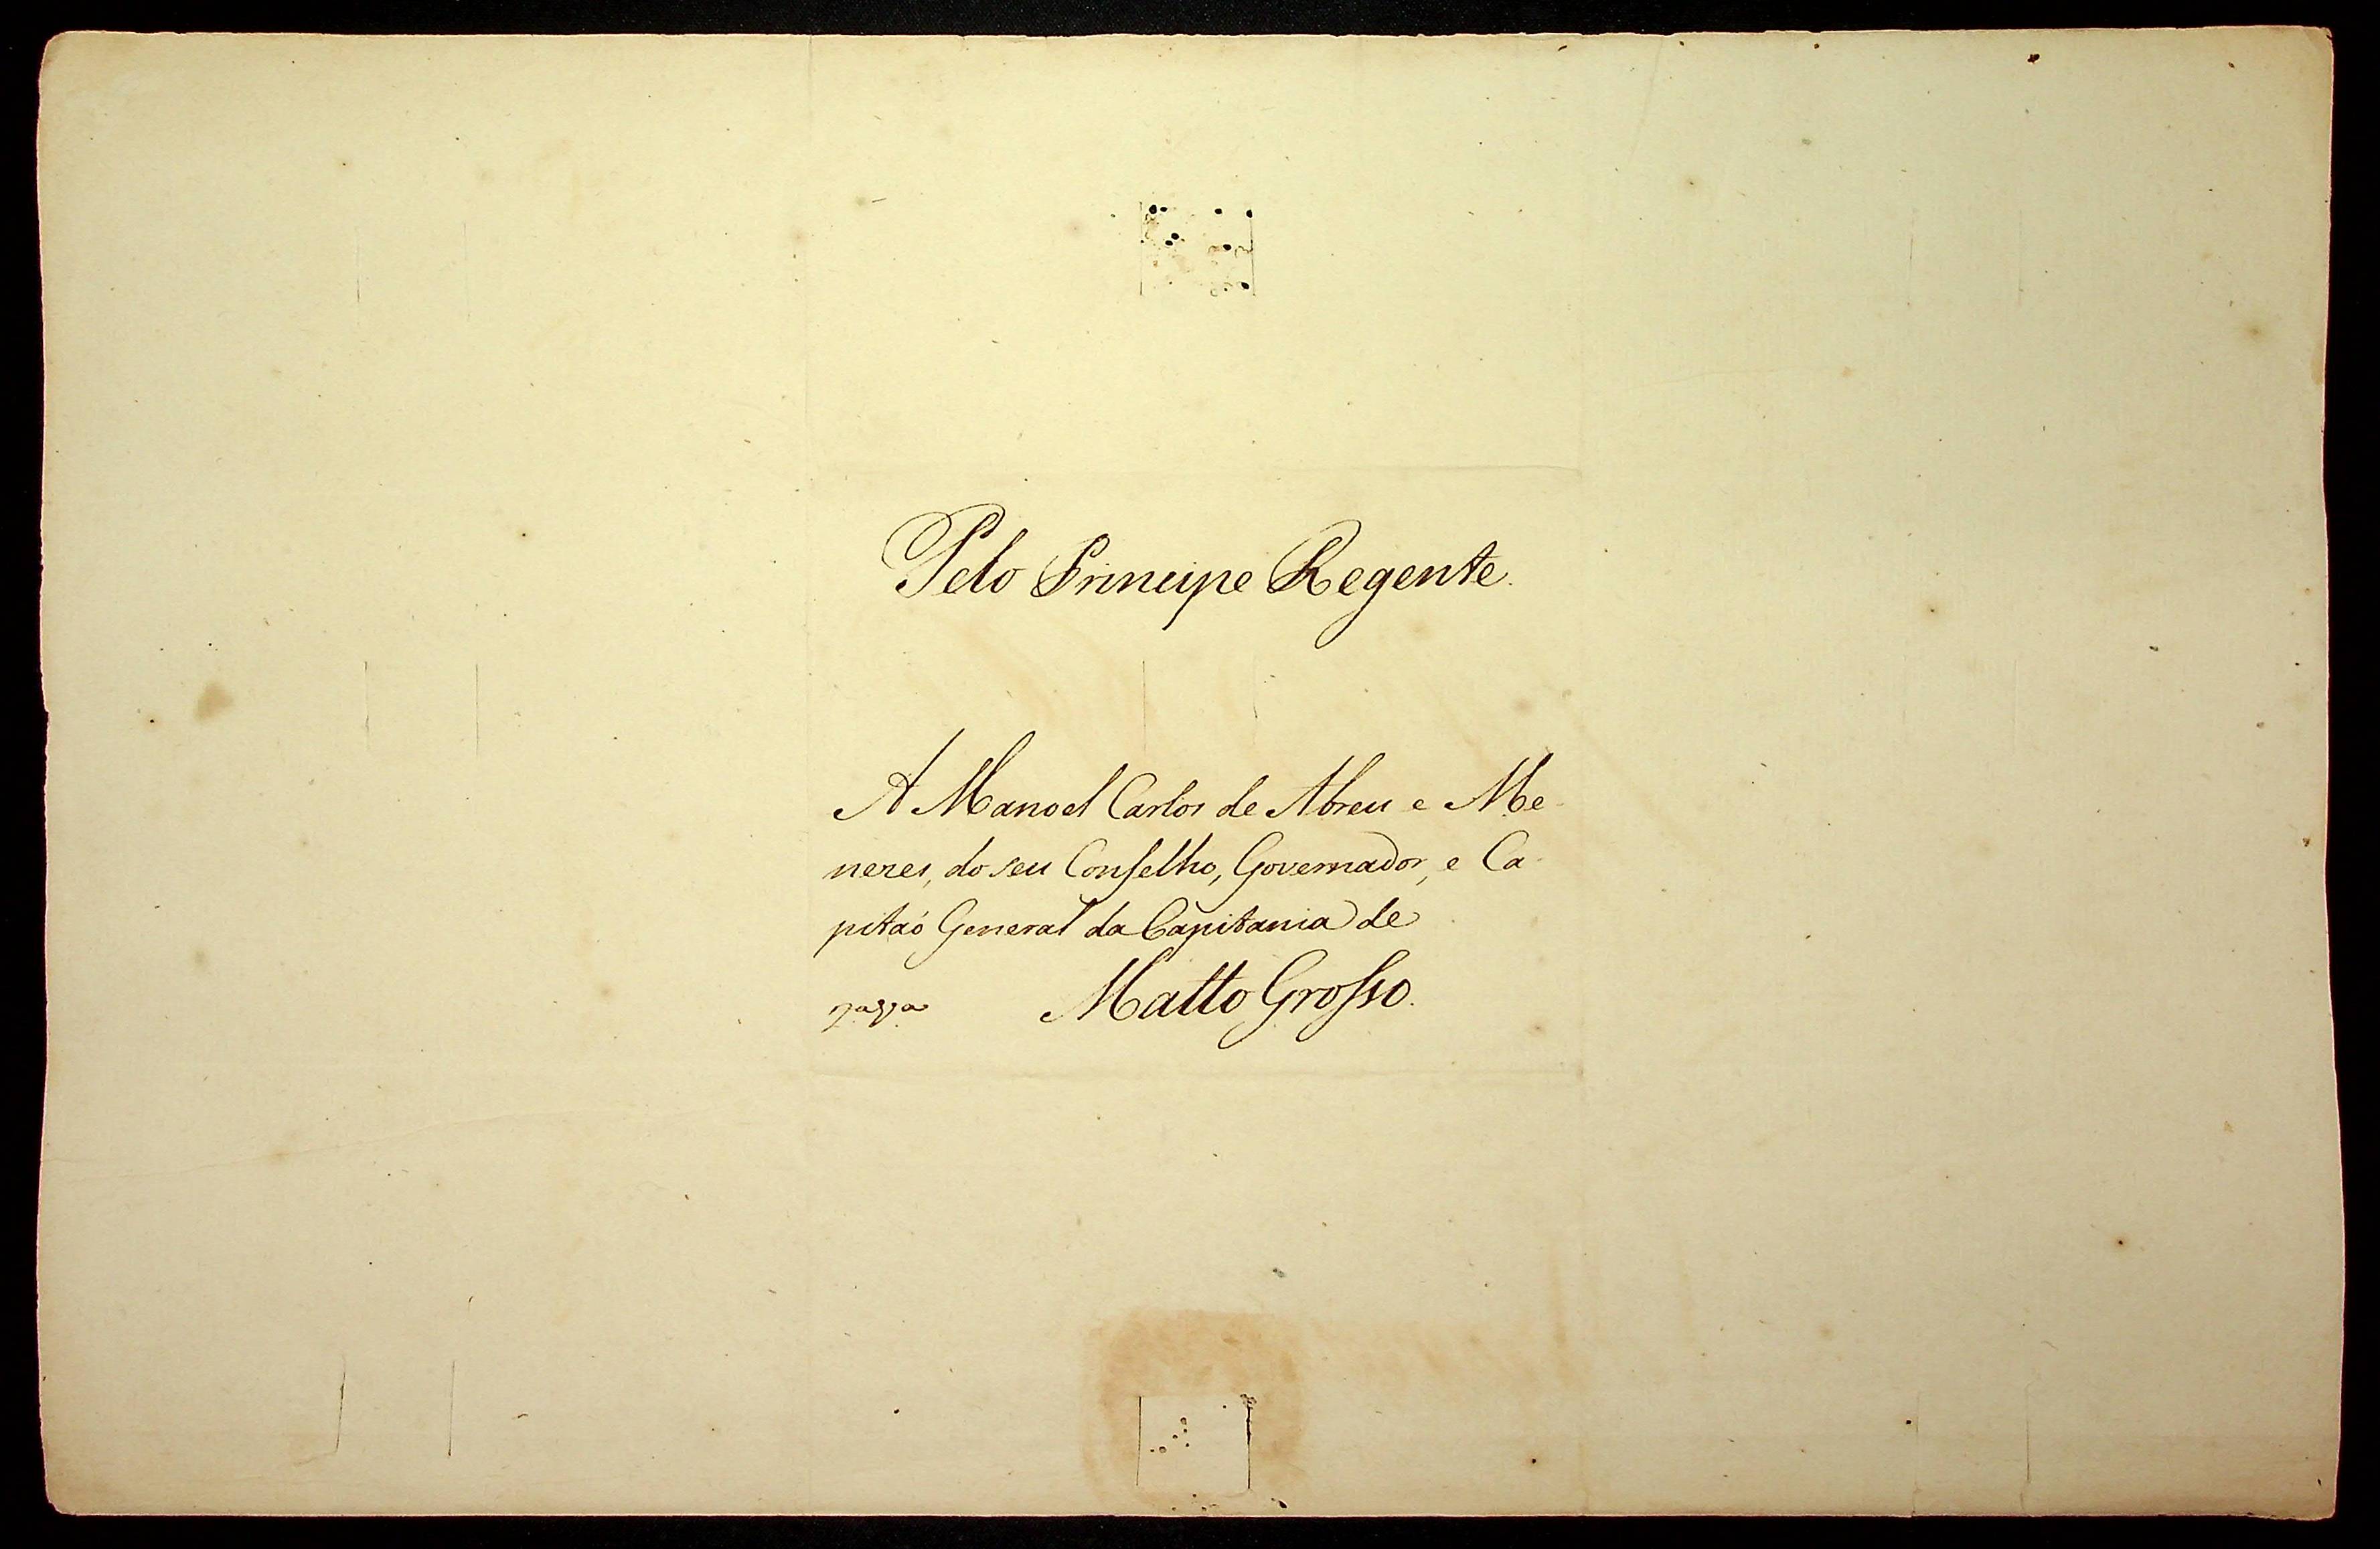 Pelo Principe Regente.
A Manoel Carlos de Abreu e Me-
nezes, do seu Conselho, Governador, e Ca-
pitaõ General da Capitania de
Matto Grosso.